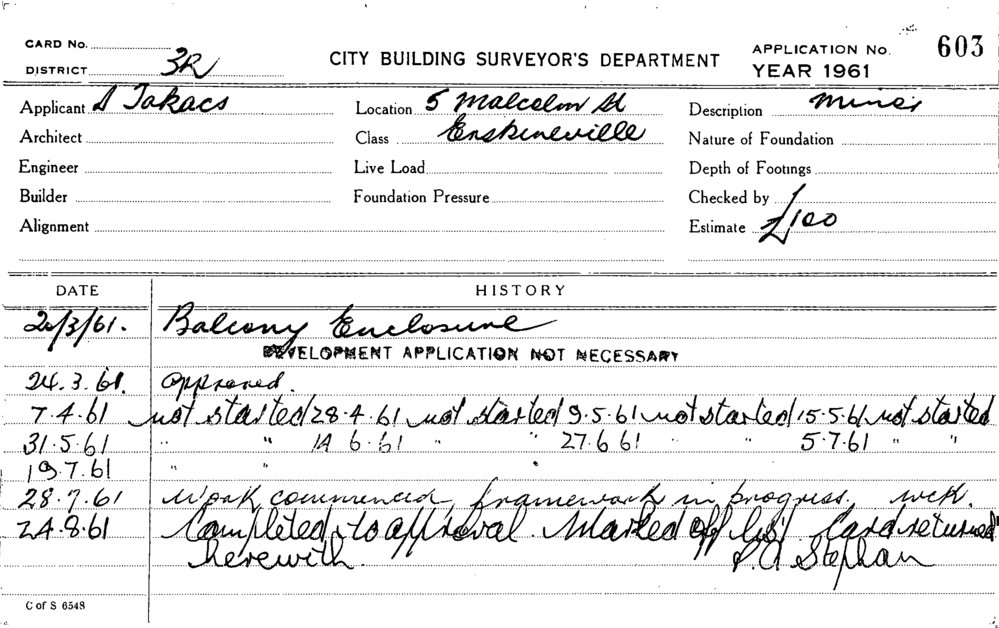 CARD No.
DISTRICT 3R
CITY BUILDING SURVEYOR'S DEPARTMENT
APPLICATION No. 603
YEAR 1961
Applicant S Takacs
Location 5 Malcolm St
Description Minor
Architect
Class Erskineville
Nature of Foundation
Engineer
Live Load
Depth of Footings
Builder
Foundation Pressure
Checked by
Alignment
Estimate £100
DATE HISTORY
20/3/61. Balcony Enclosure
DEVELOPMENT APPLICATION NOT NECESSARY
24.3.61. Approved.
7.4.61 not started 28.4.61 not started 9.5.61 not started 15.5.61 not started
31.5.61 " " 14.6.61 " " 27.6.61 " " 5.7.61 " "
19.7.61 " "
28.7.61 Work commenced, framework in progress.
24.8.61 Completed to approval. Marked off list. Card returned
herewith. P.A Stephan
C of S 6548